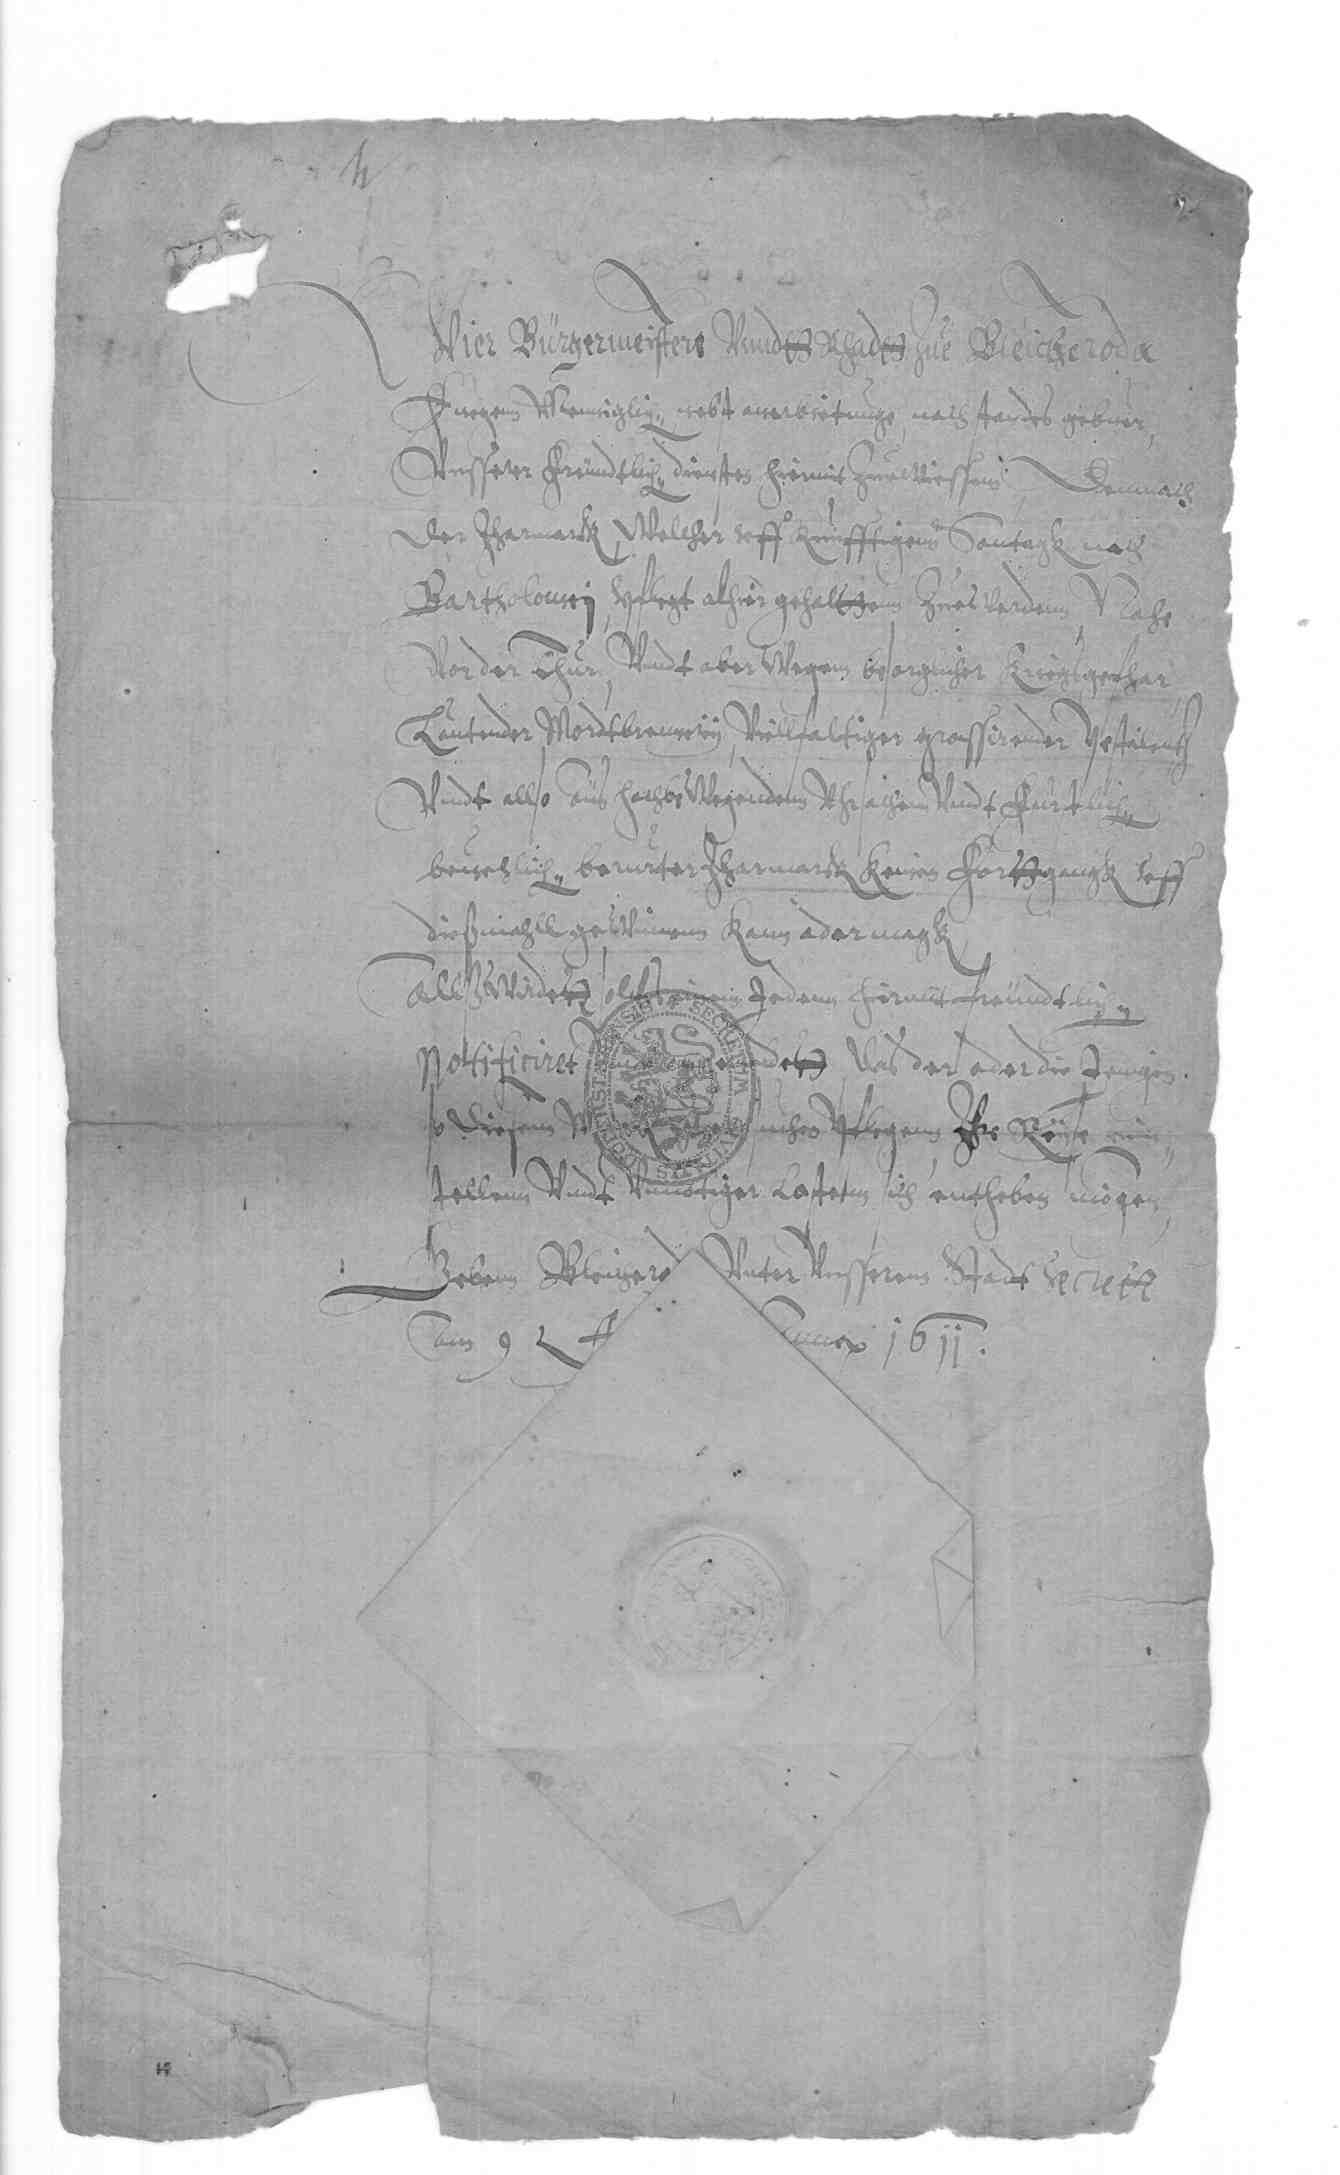 Wier Bürgermeistere Vnndt Rhadt zue Bleicheroda
Fuegenn Menniglich, nebst anerbietunge, nach standes gebuer,
Vnsserer freundtlich, diensten hiermit zue Wiessenn, Demnach
der Jharmarkt, Welcher vff künfftigenn Sontagk nach
Bartholomej, Pflegt alhier gehalttenn zue Werdenn, Nahe
Vor der Thur, Vndt aber Wegen besorglicher Kriegsgefhar
Lauttender Mordtbrennereij, Vielfaltiger grassirender Pestilentz
Vndt also aus hochbeWegendenn Vhrsachenn Vndt Fürstlich,
beuehlich, berurter Jharmarkt Keinen Forttgangk vff
dießmahll geWinnenn Kann oder magk
Allß Wirdt solchs einem Jedenn hiermit freundtlich,
Nottificiret das der oder die Jenigen
so diesenn suchen Pflegenn Ihre Reise ein,
stellenn Vndt Vnnötiger Costenn sich entheben mögen,
Gebenn Bleichero Vnter Vnsserem Stadt Secrett
am 9 Anno 1611.
SECRETVM